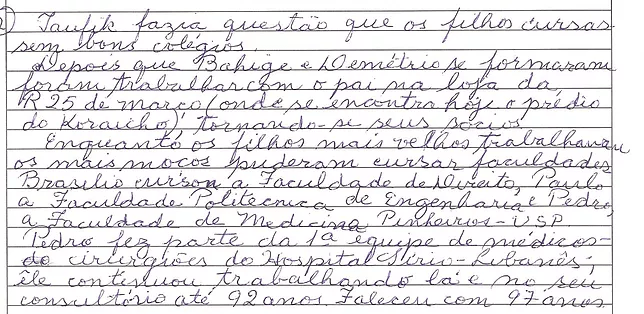 Taufik fazia questão que os filhos cursas-
sem bons colégios.
Depois que Bahige e Demétrio se formaram
foram trabalhar com o pai na loja da
R 25 de março (onde se encontra hoje o prédio
do Koraicho), tornando-se seus sócios
Enquanto os filhos mais velhos trabalhavam
os mais moços puderam cursar faculdades
Brasilio cursou a Faculdade de Direito, Paulo
a Faculdade Politecnica de Engenharia e Pedro,
a Faculdade de Medicina Pinheiros-USP
Pedro fez parte da 1ª equipe de médicos-
do cirurgiões do Hospital Sírio-Libanês;
êle continuou trabalhando lá e no seu
consultório até 92 anos. Faleceu com 97 anos.